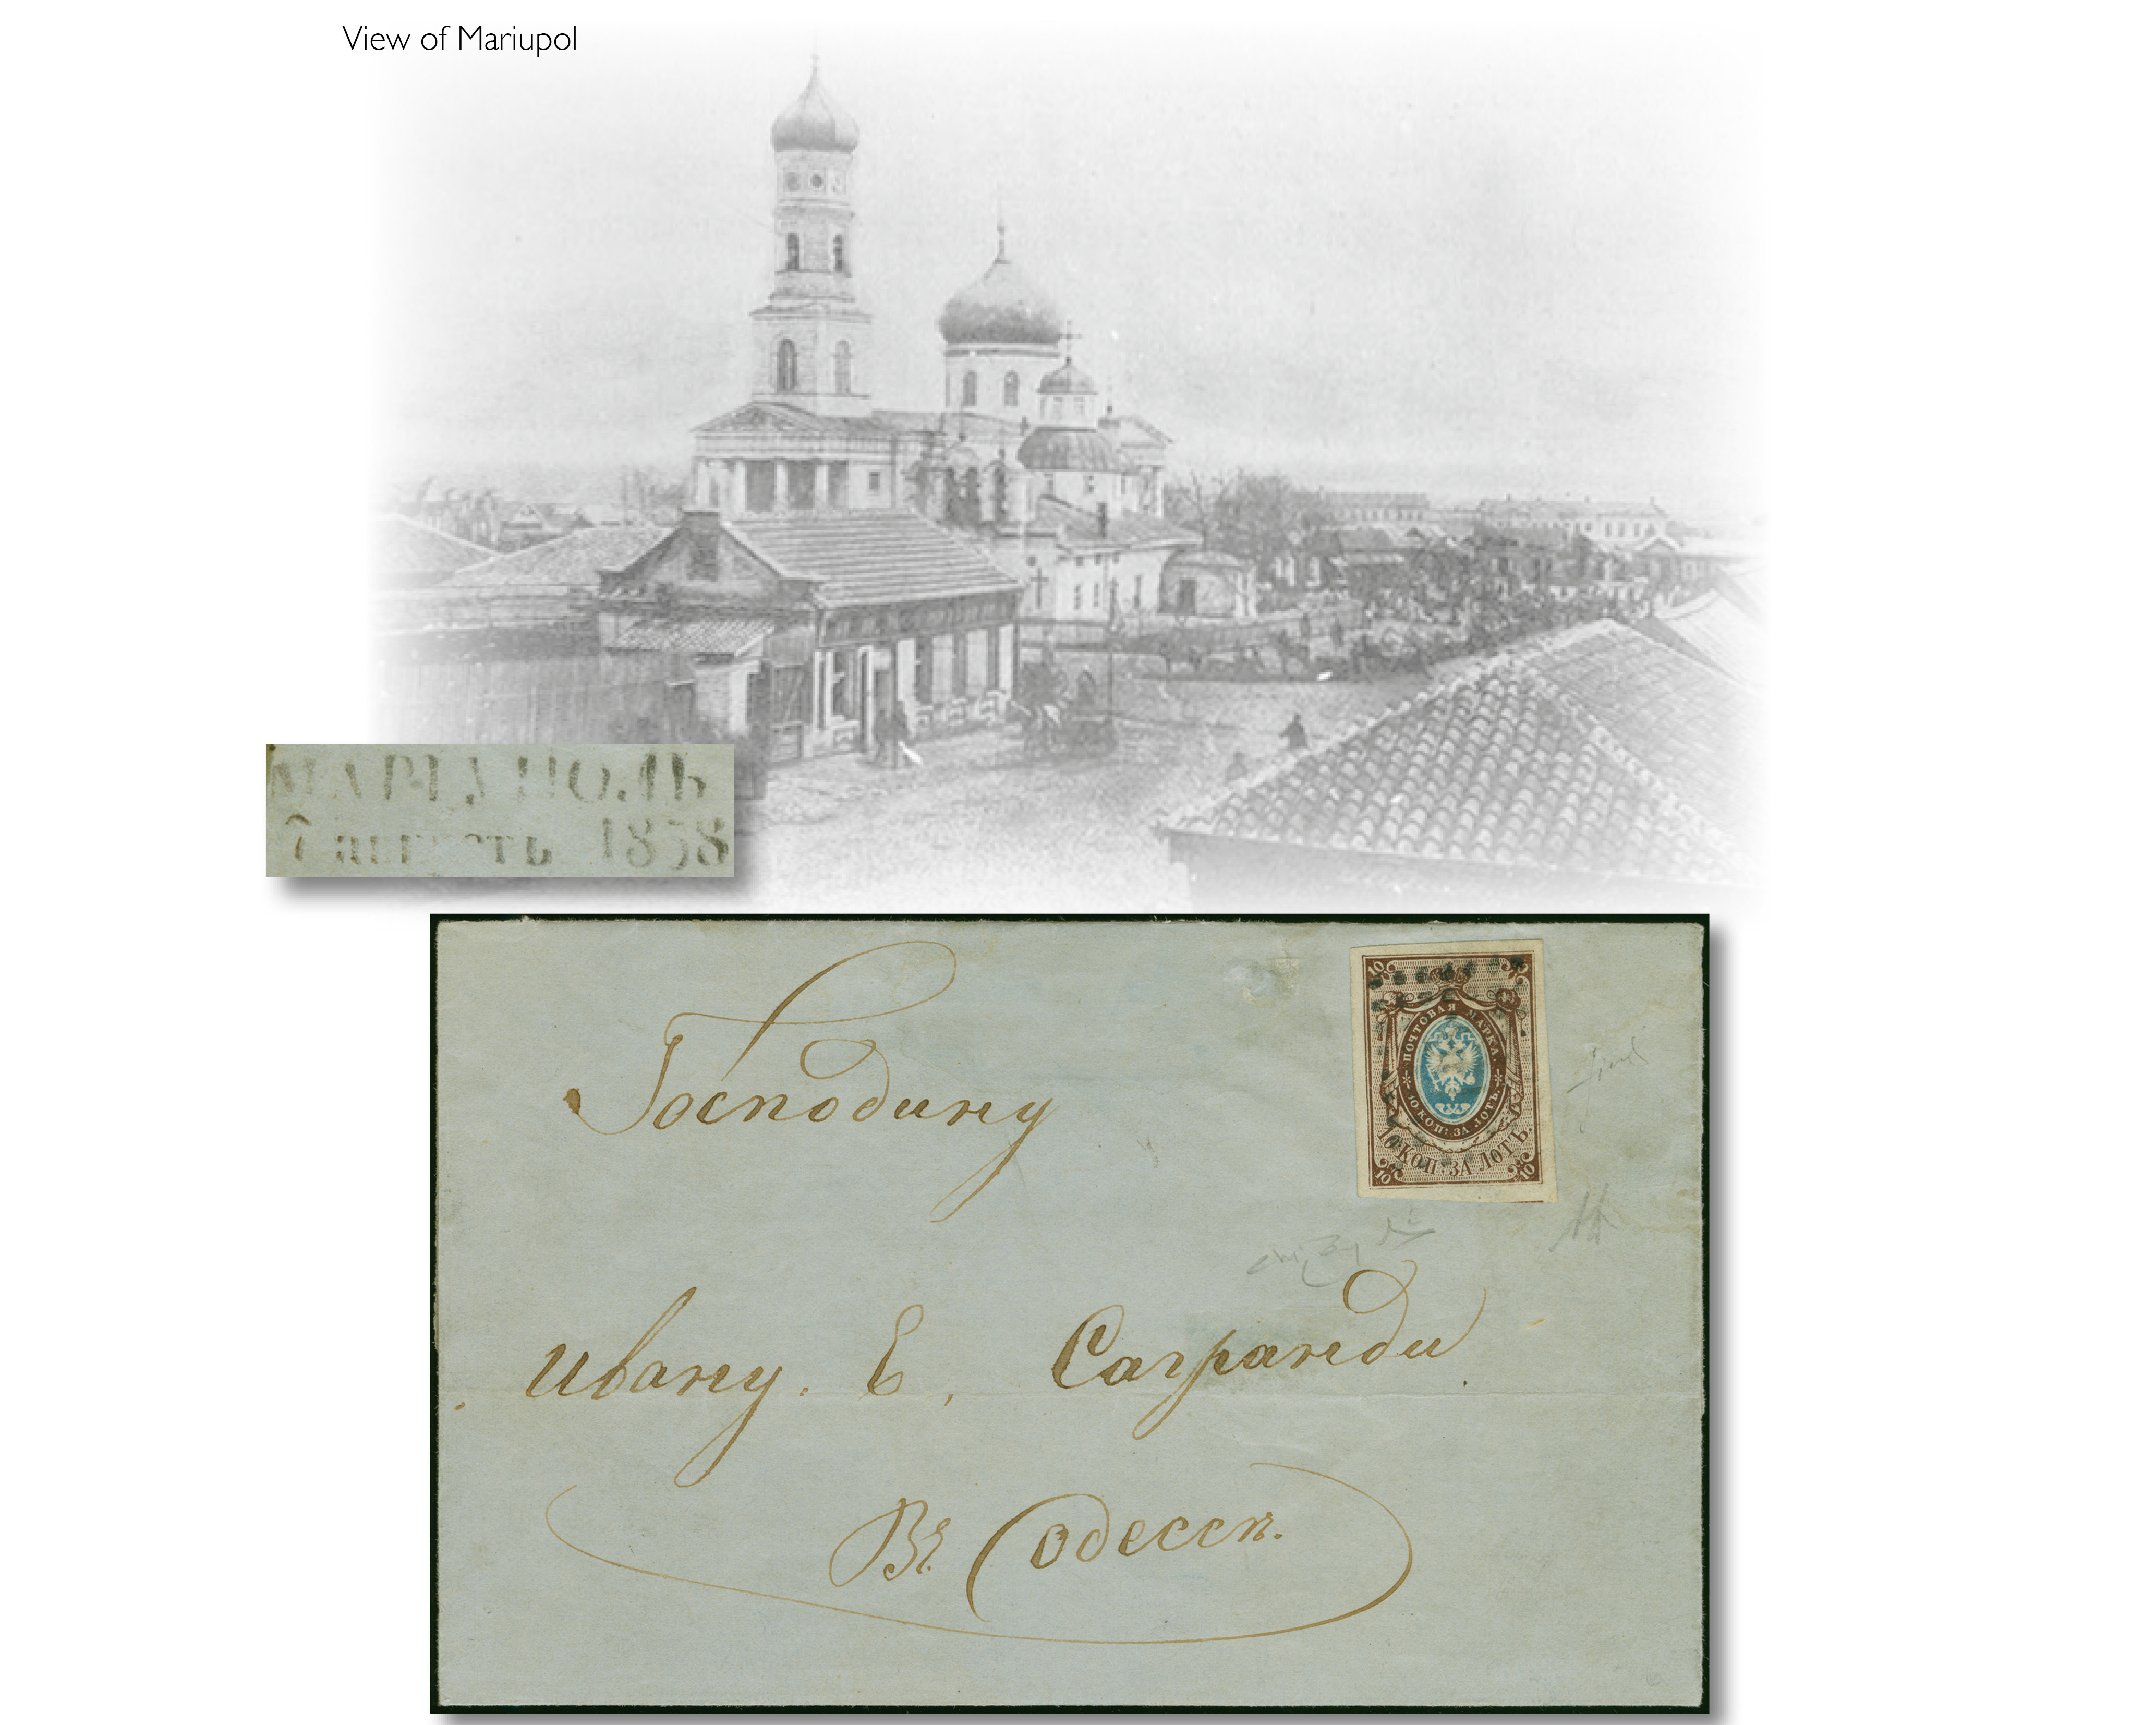 View of Mariupol
МАРІУПОЛЬ
7 августъ 1858
Господину
10
ПОЧТОВАЯ МАРКА.
10 КОП: ЗА ЛОТЪ.
10 КОП: ЗА ЛОТЪ.
10 10
Ивану. Е. Сагранди
Въ Одессѣ.